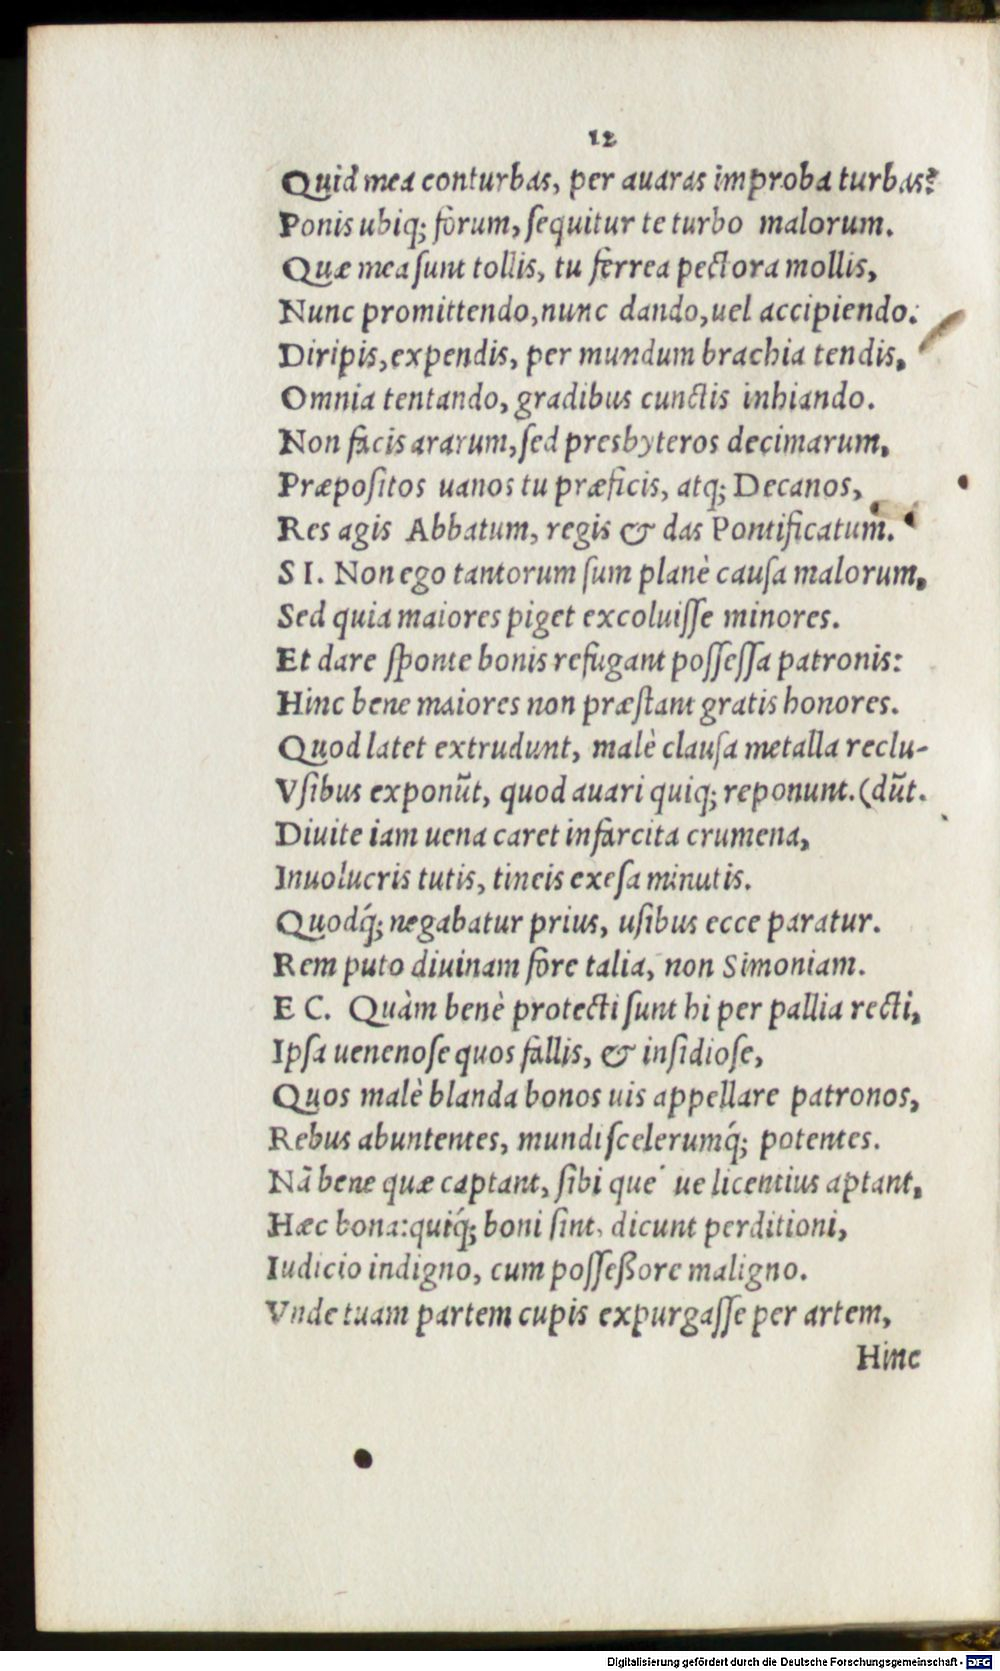 12
Quid mea conturbas, per auaras improba turbas?
Ponis ubiq; forum, ſequitur te turbo malorum.
Quæ mea ſunt tollis, tu ferrea pectora mollis,
Nunc promittendo, nunc dando, uel accipiendo.
Diripis, expendis, per mundum brachia tendis,
Omnia tentando, gradibus cunctis inhiando.
Non facis ararum, ſed presbyteros decimarum,
Præpoſitos uanos tu præficis, atq; Decanos,
Res agis Abbatum, regis & das Pontificatum.
S I. Non ego tantorum ſum planè cauſa malorum,
Sed quia maiores piget excoluiſſe minores.
Et dare ſponte bonis refugant poſſeſſa patronis:
Hinc bene maiores non præſtant gratis honores.
Quod latet extrudunt, malè clauſa metalla reclu-
Vſibus exponūt, quod auari quiq; reponunt. (dūt.
Diuite iam uena caret infarcita crumena,
Inuolucris tutis, tineis exeſa minutis.
Quodq́; negabatur prius, uſibus ecce paratur.
Rem puto diuinam fore talia, non Simoniam.
E C. Quàm benè protecti ſunt hi per pallia recti,
Ipſa uenenoſe quos fallis, & inſidioſe,
Quos malè blanda bonos uis appellare patronos,
Rebus abuntentes, mundi ſcelerumq́; potentes.
Nā bene quæ captant, ſibi que ue licentius aptant,
Hæc bona: quiq́; boni ſint, dicunt perditioni,
Iudicio indigno, cum poſſeßore maligno.
Vnde tuam partem cupis expurgaſſe per artem,
Hinc
Digitalisierung gefördert durch die Deutsche Forschungsgemeinschaft - DFG